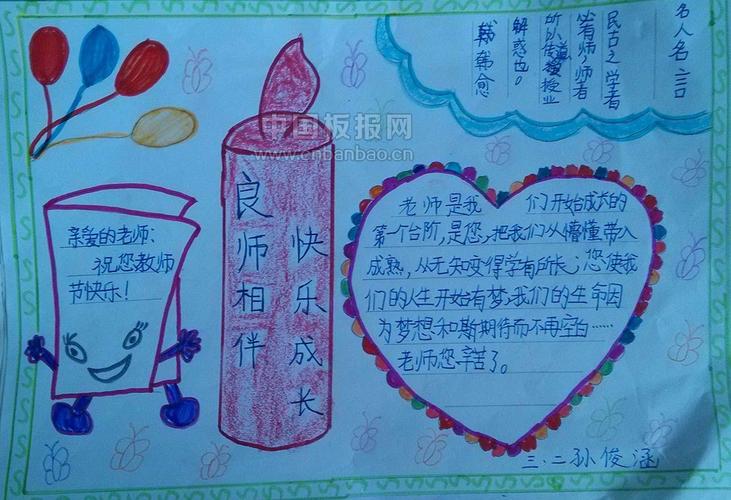 名人名言
民古之学者
必有师,师者
所以传道授业
解惑也。
韩愈
中国板报网
www.cnbanbao.cn
亲爱的老师:
祝您教师
节快乐!
良师相伴
快乐成长
老师是我们开始成长的
第一个台阶,是您,把我们从懵懂带入
成熟,从无知变得学有所长,您使我
们的人生开始有梦,我们的生命因
为梦想和斯期待而不再空白……
老师您辛苦了。
三.二孙俊涵